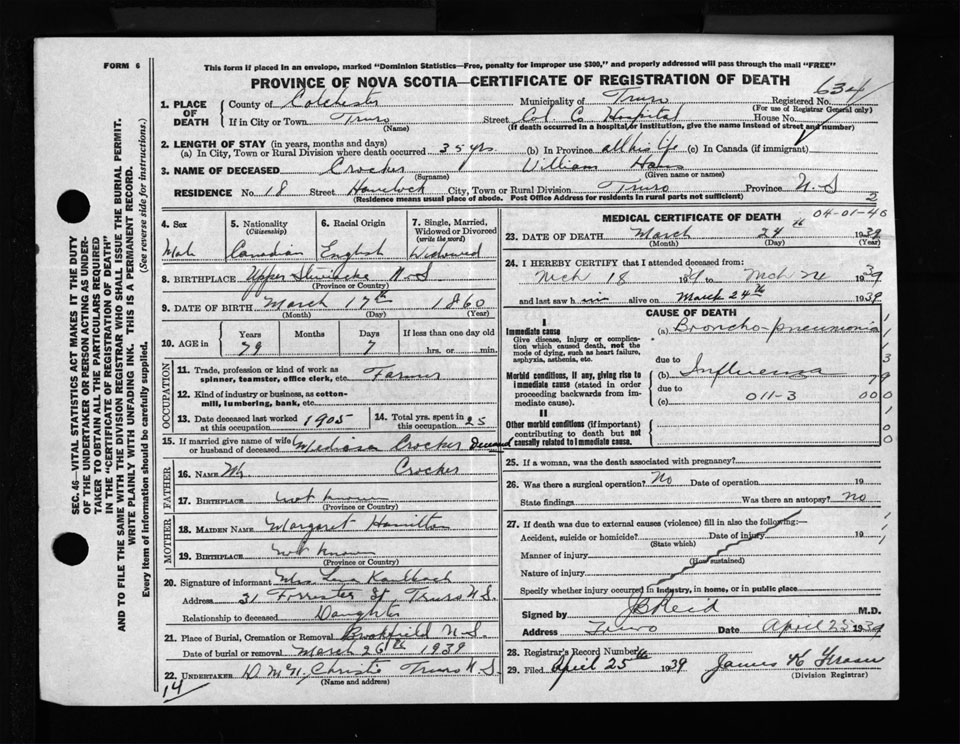 FORM 6
This form if placed in an envelope, marked "Dominion Statistics—Free, penalty for improper use $300," and properly addressed will pass through the mail "FREE"
PROVINCE OF NOVA SCOTIA—CERTIFICATE OF REGISTRATION OF DEATH
634
1. PLACE OF DEATH
County of Colchester Municipality of Truro Registered No.
(For use of Registrar General only)
If in City or Town Truro Street Col. Co Hospital House No.
(Name) (If death occurred in a hospital or institution, give the name instead of street and number)
2. LENGTH OF STAY (in years, months and days)
(a) In City, Town or Rural Division where death occurred 35 yrs. (b) In Province all his life (c) In Canada (if immigrant)
3. NAME OF DECEASED Crocker William
(Surname) (Given name or names)
RESIDENCE No. 18 Street Havelock City, Town or Rural Division Truro Province N.S
(Residence means usual place of abode. Post Office Address for residents in rural parts not sufficient)
2
4. Sex 5. Nationality (Citizenship) 6. Racial Origin 7. Single, Married, Widowed or Divorced (write the word)
Male Canadian English Widowed
8. BIRTHPLACE Upper Stewiacke N.S
(Province or Country)
9. DATE OF BIRTH March 17th 1860
(Month) (Day) (Year)
10. AGE in Years Months Days If less than one day old
79 7 hrs. or min.
OCCUPATION
11. Trade, profession or kind of work as spinner, teamster, office clerk, etc. Farmer
12. Kind of industry or business, as cotton-mill, lumbering, bank, etc.
13. Date deceased last worked at this occupation 1905 14. Total yrs. spent in this occupation 25
15. If married give name of wife or husband of deceased Crocker Deceased
FATHER
16. NAME Wm Crocker
17. BIRTHPLACE not known
(Province or Country)
MOTHER
18. MAIDEN NAME Margaret Hamilton
19. BIRTHPLACE not known
(Province or Country)
20. Signature of informant Mrs Lena Kaulbach
Address 31 Forrester St, Truro N.S.
Relationship to deceased Daughter
21. Place of Burial, Cremation or Removal Brookfield N.S.
Date of burial or removal March 26th 1939
22. UNDERTAKER Truro N.S.
(Name and address)
14
MEDICAL CERTIFICATE OF DEATH
04-01-40
23. DATE OF DEATH March 24th 1939
(Month) (Day) (Year)
24. I HEREBY CERTIFY that I attended deceased from:
Mch 18 1939 to Mch 24 1939
and last saw h im alive on March 24th 1939
CAUSE OF DEATH
I
Immediate cause
Give disease, injury or complication which caused death, not the mode of dying, such as heart failure, asphyxia, asthenia, etc.
(a) Broncho-pneumonia
due to
Morbid conditions, if any, giving rise to immediate cause (stated in order proceeding backwards from immediate cause).
(b) Influenza
due to
(c) 011-3 000
II
Other morbid conditions (if important) contributing to death but not causally related to immediate cause.
25. If a woman, was the death associated with pregnancy?
26. Was there a surgical operation? No Date of operation 19
State findings Was there an autopsy? No
27. If death was due to external causes (violence) fill in also the following:—
Accident, suicide or homicide? Date of injury 19
(State which)
Manner of injury
(How sustained)
Nature of injury
Specify whether injury occurred in industry, in home, or in public place
Signed by Reid M.D.
Address Truro Date April 25 1939
28. Registrar's Record Number
29. Filed April 25th 1939 James
(Division Registrar)
SEC. 46—VITAL STATISTICS ACT MAKES IT THE DUTY
OF THE UNDERTAKER OR PERSON ACTING AS UNDER-
TAKER TO OBTAIN ALL THE PARTICULARS REQUIRED
IN THE "CERTIFICATE OF REGISTRATION OF DEATH"
AND TO FILE THE SAME WITH THE DIVISION REGISTRAR WHO SHALL ISSUE THE BURIAL PERMIT.
WRITE PLAINLY WITH UNFADING INK. THIS IS A PERMANENT RECORD.
Every item of information should be carefully supplied. (See reverse side for instructions.)